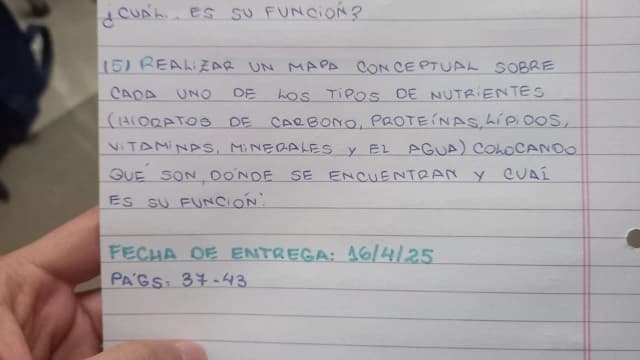 ¿CUÁL ES SU FUNCIÓN?
(5) REALIZAR UN MAPA CONCEPTUAL SOBRE
CADA UNO DE LOS TIPOS DE NUTRIENTES
(HIDRATOS DE CARBONO, PROTEÍNAS, LÍPIDOS,
VITAMINAS, MINERALES Y EL AGUA) COLOCANDO
QUÉ SON, DÓNDE SE ENCUENTRAN Y CUÁL
ES SU FUNCIÓN.
FECHA DE ENTREGA: 16/4/25
PÁGS: 37-43